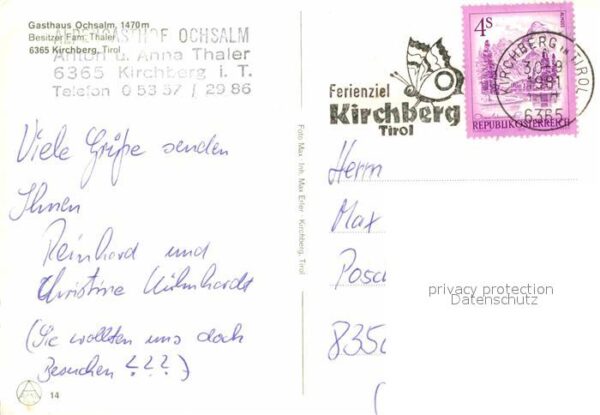 Gasthaus Ochsalm, 1470 m
Besitzer Fam. Thaler
6365 Kirchberg, Tirol
ALPENGASTHOF OCHSALM
Anton u. Anna Thaler
6365 Kirchberg i. T.
Telefon 0 53 57 / 29 86
Viele Grüße senden
Ihnen
Reinhard und
Christine
(Sie wollten uns doch
Besuchen ???)
14
Foto Max, Inh. Max Erler, Kirchberg, Tirol
Ferienziel
Kirchberg
Tirol
4 S
REPUBLIK ÖSTERREICH
KIRCHBERG IN TIROL
6365
Herrn
Max
835
privacy protection
Datenschutz